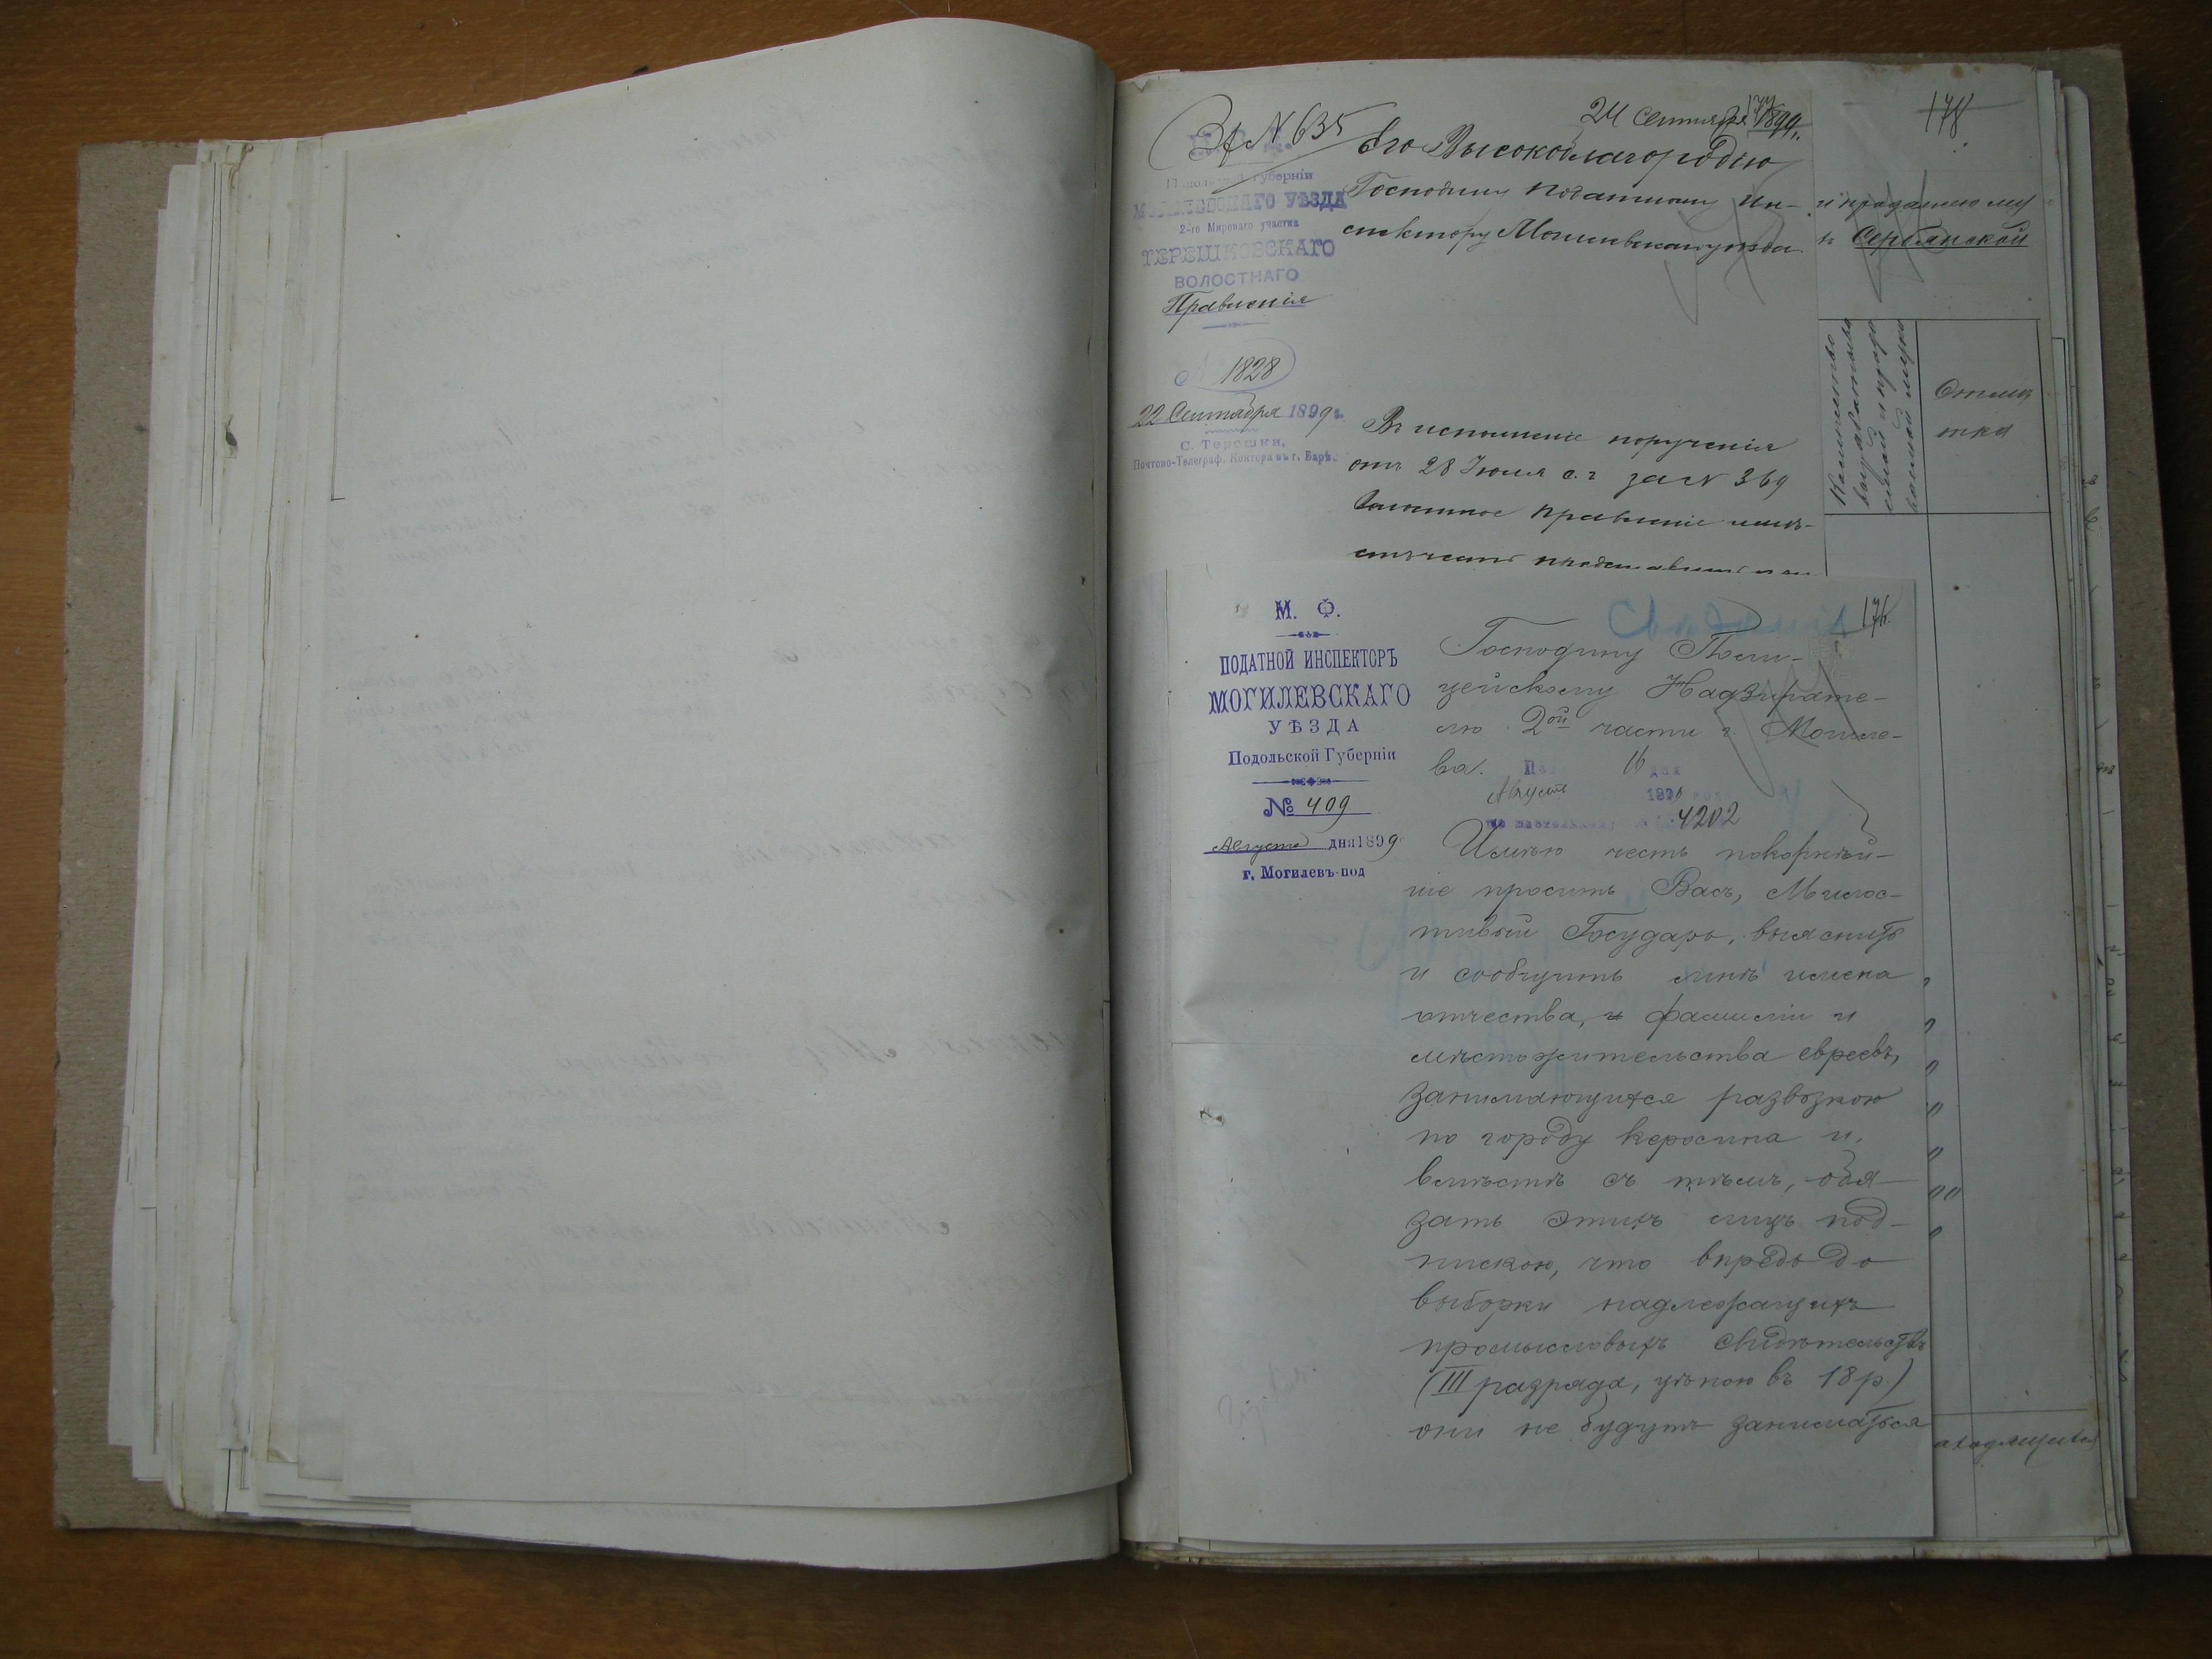 Вх N 635
24 Сентября 1899 г.
177
178
Его Высокоблагородію
Господину Податному Ин-
спектору Могилевскаго уѣзда
Подольской губерніи
МОГИЛЕВСКАГО УѢЗДА
2-го Мирового участка
ТЕРЕШКОВСКАГО
ВОЛОСТНАГО
Правленія
1828
22 Сентября 1899 г.
С. Терешки,
Почтово-Телеграф. Контора въ г. Барѣ.
Въ исполненіе порученія
отъ 28 Іюля с. г за N 369
Волостное Правленіе имѣ-
и проданному
въ Сербянской
Количество
Отмѣ-
тка
176
Свѣдѣнія
М. Ф.
ПОДАТНОЙ ИНСПЕКТОРЪ
МОГИЛЕВСКАГО
УѢЗДА
Подольской Губерніи
№ 409
Августа дня 1899
г. Могилевъ-под
Господину Поли-
цейскому Надзирате-
лю 2ой части г. Могиле-
ва.
16 дня
Августа 189
4202
Имѣю честь покорнѣй-
ше просить Васъ, Милос-
тивый Государь, выяснить
и сообщить мнѣ имена
отчества, и фамиліи и
мѣстожительства евреевъ,
занимающихся развозкою
по городу керосина и,
вмѣстѣ съ тѣмъ, обя-
зать этихъ лицъ под-
пискою, что впредь до
выборки надлежащихъ
промысловыхъ свидѣтельствъ
(III разряда, цѣною въ 18 р.)
они не будутъ заниматься